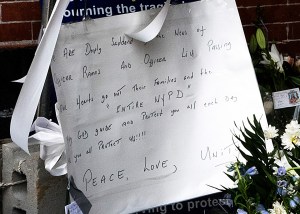 ourning the tra
ARE Deeply Saddened the News of
Officer Ramos And Officer Liu Passing
Hearts go out Their Families and the
"ENTIRE NYPD"
God Guide and Protect you all each day
you all Protect us!!!!
PEACE, LOVE, Unit
ving to protec